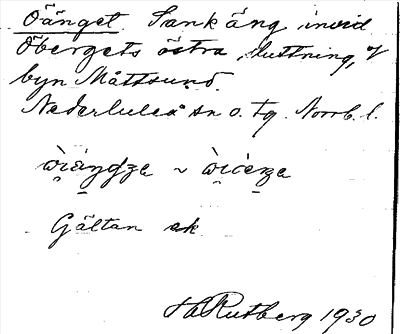 Öänget. Sank äng invid
Öbergets östra sluttning,
byn Måttsund.
Nederluleå sn o. tg Norrb. l.
~
Gältan ek
H Rutberg 1930